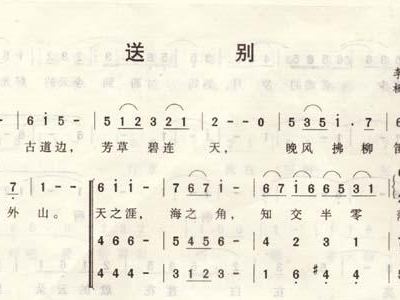 送 别
李
- | 6 i 5 - | 5 1 2 3 2 1 | 2 - - 0 | 5 3 5 i . 7 | 6
古道边, 芳草 碧连 天, 晚风 拂柳 笛
7 | 1 - - | 6 i i - | 7 6 7 i - | 6 7 i 6 6 5 3 1 |
外 山。 天之涯, 海之角, 知 交 半 零
4 4 6 - | 5 4 5 6 - | 4 3 3 |
4 4 4 - | 3 1 2 3 - | 1 6 #4 4 |